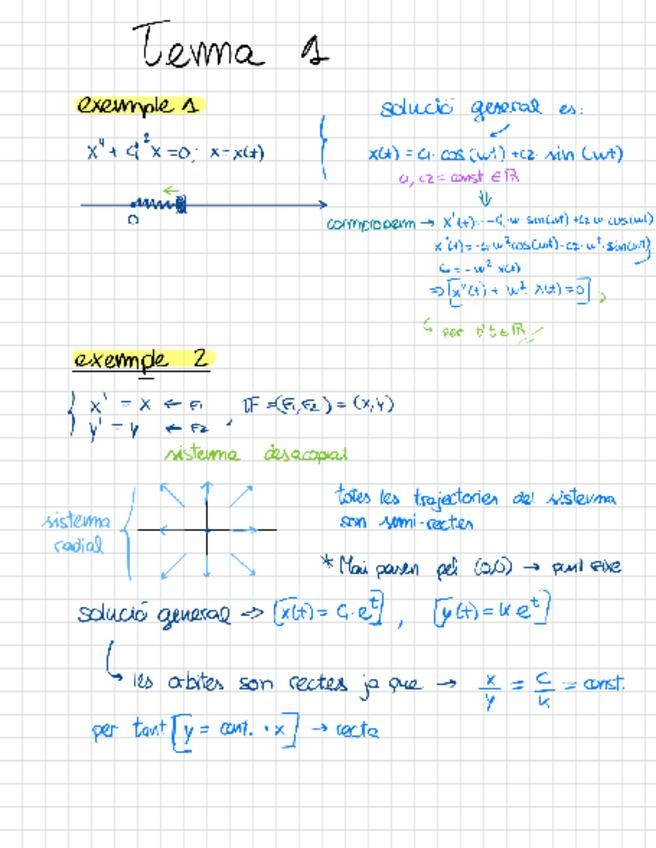 Tema 1
exemple 1
x'' + ω²x = 0; x = x(t)
0
solució general es:
x(t) = c₁ cos(ωt) + c₂ sin(ωt)
c₁, c₂ = const ∈ ℝ
⇓
comprovem → x'(t) = -c₁ω sin(ωt) + c₂ω cos(ωt)
x''(t) = -c₁ω²cos(ωt) - c₂ω² sin(ωt)
= -ω² x(t)
⇒ [x''(t) + ω² x(t) = 0]
per ∀t ∈ ℝ
exemple 2
{ x' = x ← F₁
y' = y ← F₂
F = (F₁, F₂) = (x, y)
sistema desacoplat
sistema
radial
totes les trajectories del sistema
son semi-rectes
* Mai passen pel (0,0) → punt fixe
solució general ⇒ [x(t) = C·eᵗ], [y(t) = K eᵗ]
les orbites son rectes ja que → x/y = C/K = const.
per tant [y = cont. · x] → recta